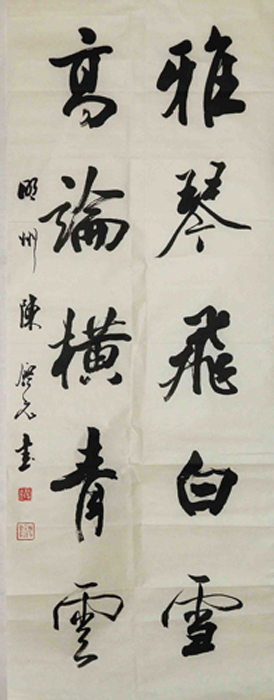 雅琴飛白雪
高論橫青雲
明州陳啓元書